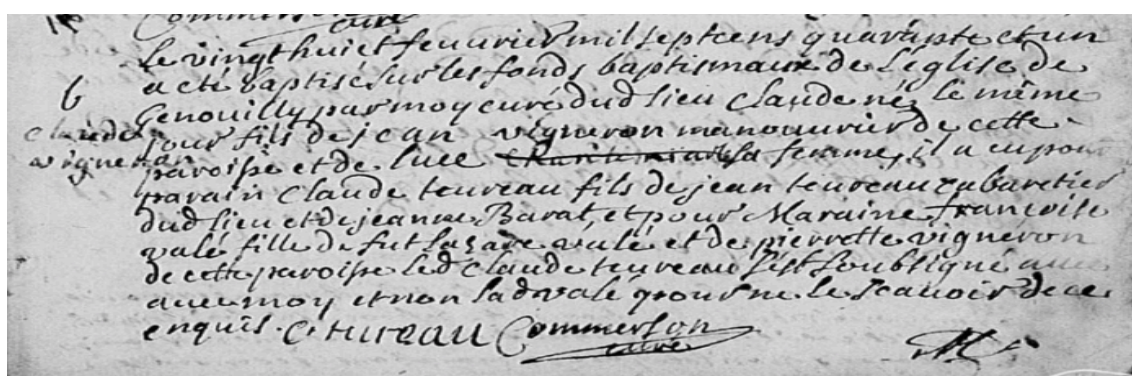 Commerson
curé
le vingt huict feuvrier mil sept cens quarante et un
a eté baptisé sur les fonds baptismaux de L'église de
b
Genouilly par moy curé dud lieu Claude né le même
claude
jour fils de jean vigneron manouvrier de cette
vigneron
paroisse et de luce sa femme, il a eu pour
parain Claude teureau fils de jean teureau cabaretier
dud lieu et de jeanne Barat, et pour Maraine francoise
valé fille de fut Lazare valé et de pierrette vigneron
de cette paroisse led Claude teureau s'est soubsigné avec
avec moy et non lad valé pour ne le scavoir de ce
enquis. C tureau Commerson
curé